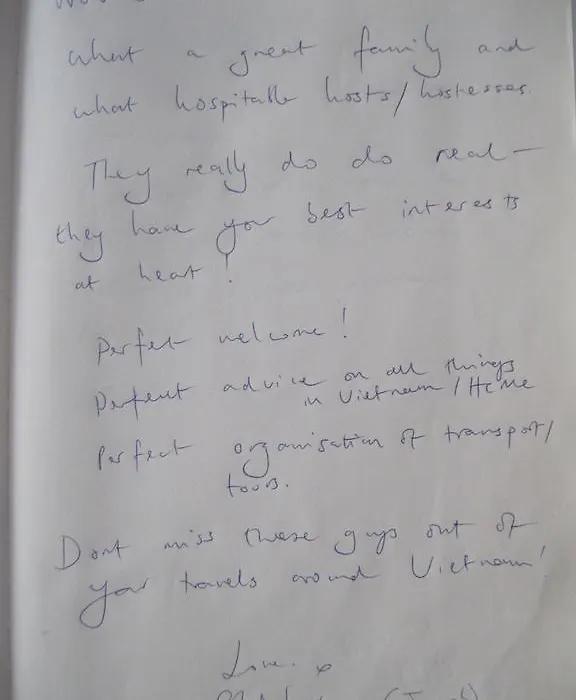 what a great family and
what hospitable hosts/hostesses.
They really do do real —
they have your best interests
at heart!
Perfect welcome!
Perfect advice on all things
in Vietnam / HCMC
Perfect organisation of transport/
tours.
Dont miss these guys out of
your travels around Vietnam!
Love. x